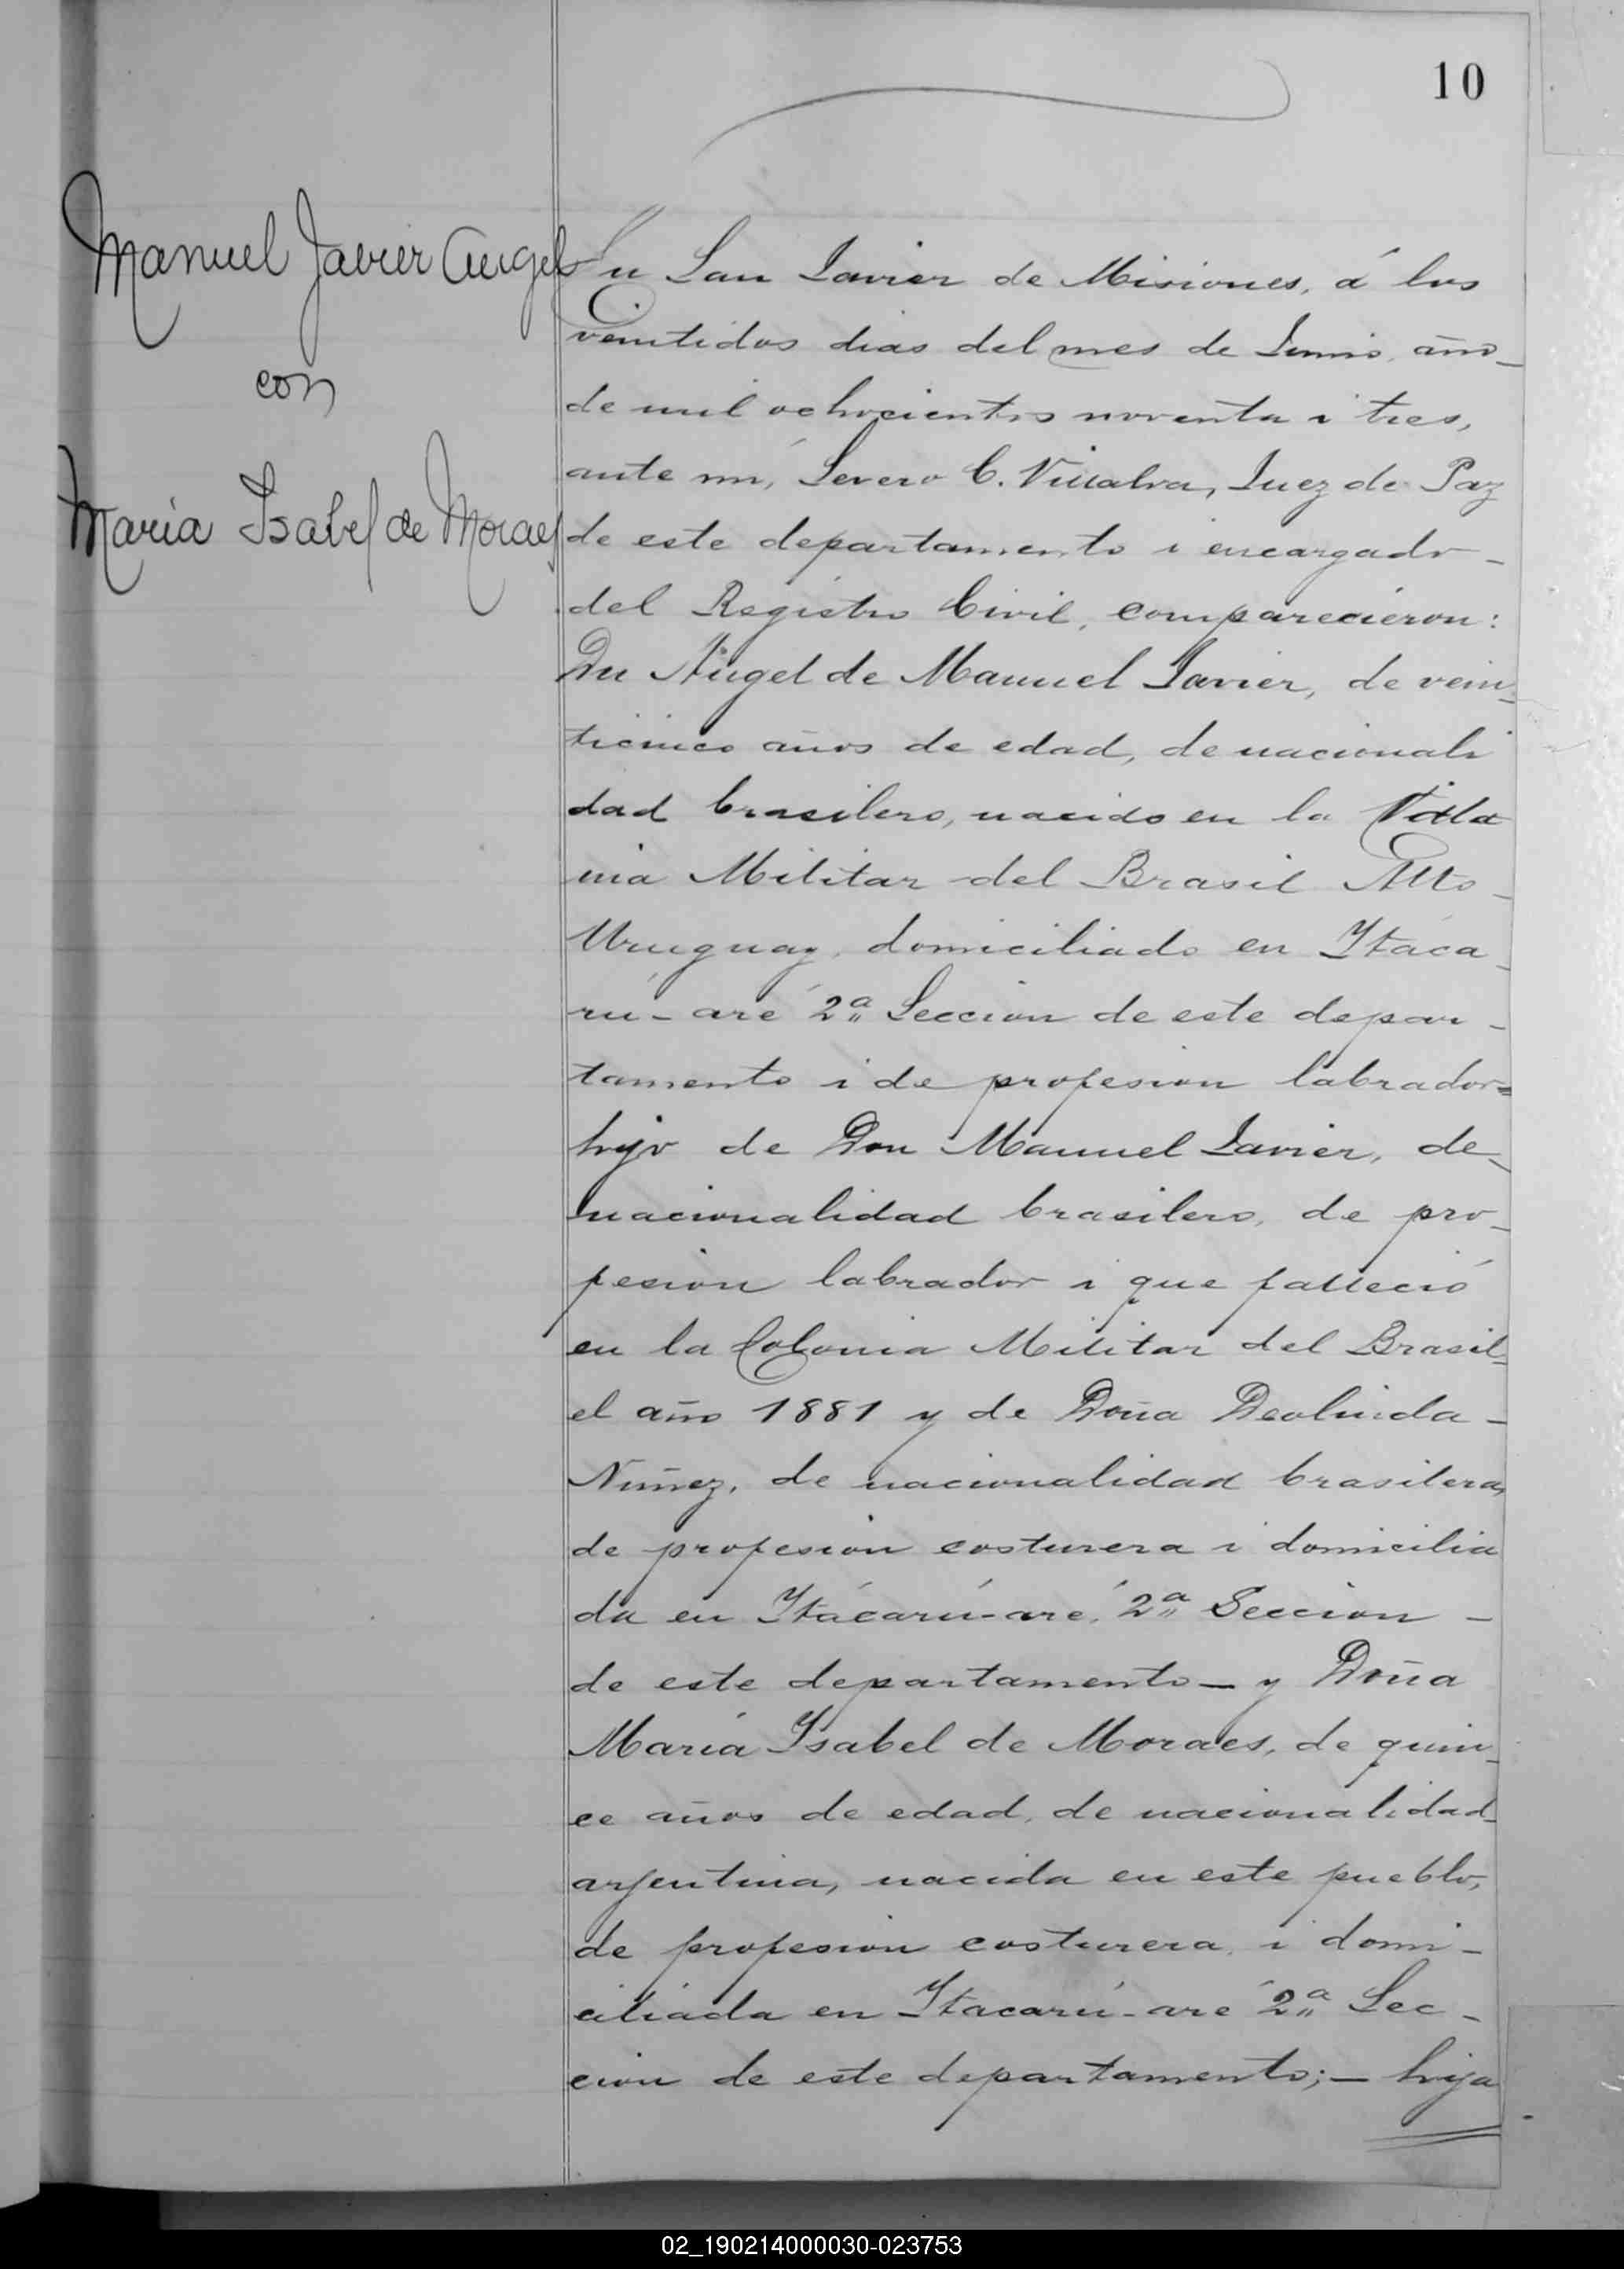 10
Manuel Javier Angel
con
Maria Isabel de Moraes
En San Javier de Misiones, á los
veintidos dias del mes de Junio, año
de mil ochocientos noventa i tres,
ante mi, Severo C. Villalva, Juez de Paz
de este departamento i encargado
del Registro Civil, comparecieron:
Dn Angel de Manuel Javier, de vein-
ticinco años de edad, de nacionali
dad brasilero, nacido en la
nia Militar del Brasil Alto
Uruguay, domiciliado en Itáca-
rú-aré 2ª Seccion de este depar-
tamento i de profesion labrador=
hijo de Don Manuel Javier, de
nacionalidad brasilero, de pro-
fesion labrador i que falleció
en la Colonia Militar del Brasil
el año 1881 y de Doña Deolinda -
Nuñez, de nacionalidad brasilera,
de profesion costurera i domicilia
da en Itácarú-aré, 2ª Seccion -
de este departamento - y Doña
María Isabel de Moraes, de quin-
ce años de edad, de nacionalidad
arjentina, nacida en este pueblo,
de profesion costurera, i domi-
ciliada en Itacarú-aré 2ª Sec-
cion de este departamento; - hija
02_190214000030-023753